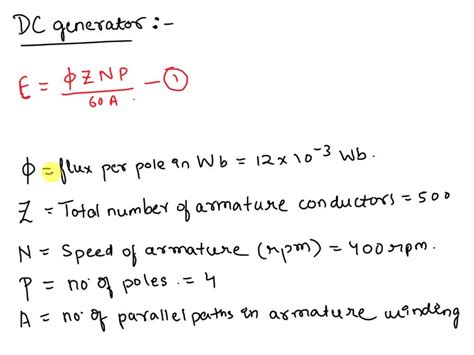 DC generator :-
E = ϕZNP/60A - ①
ϕ = flux per pole in Wb = 12 × 10⁻³ Wb.
Z = Total number of armature conductors = 500
N = Speed of armature (rpm) = 400 rpm.
P = no. of poles. = 4
A = no. of parallel paths in armature winding